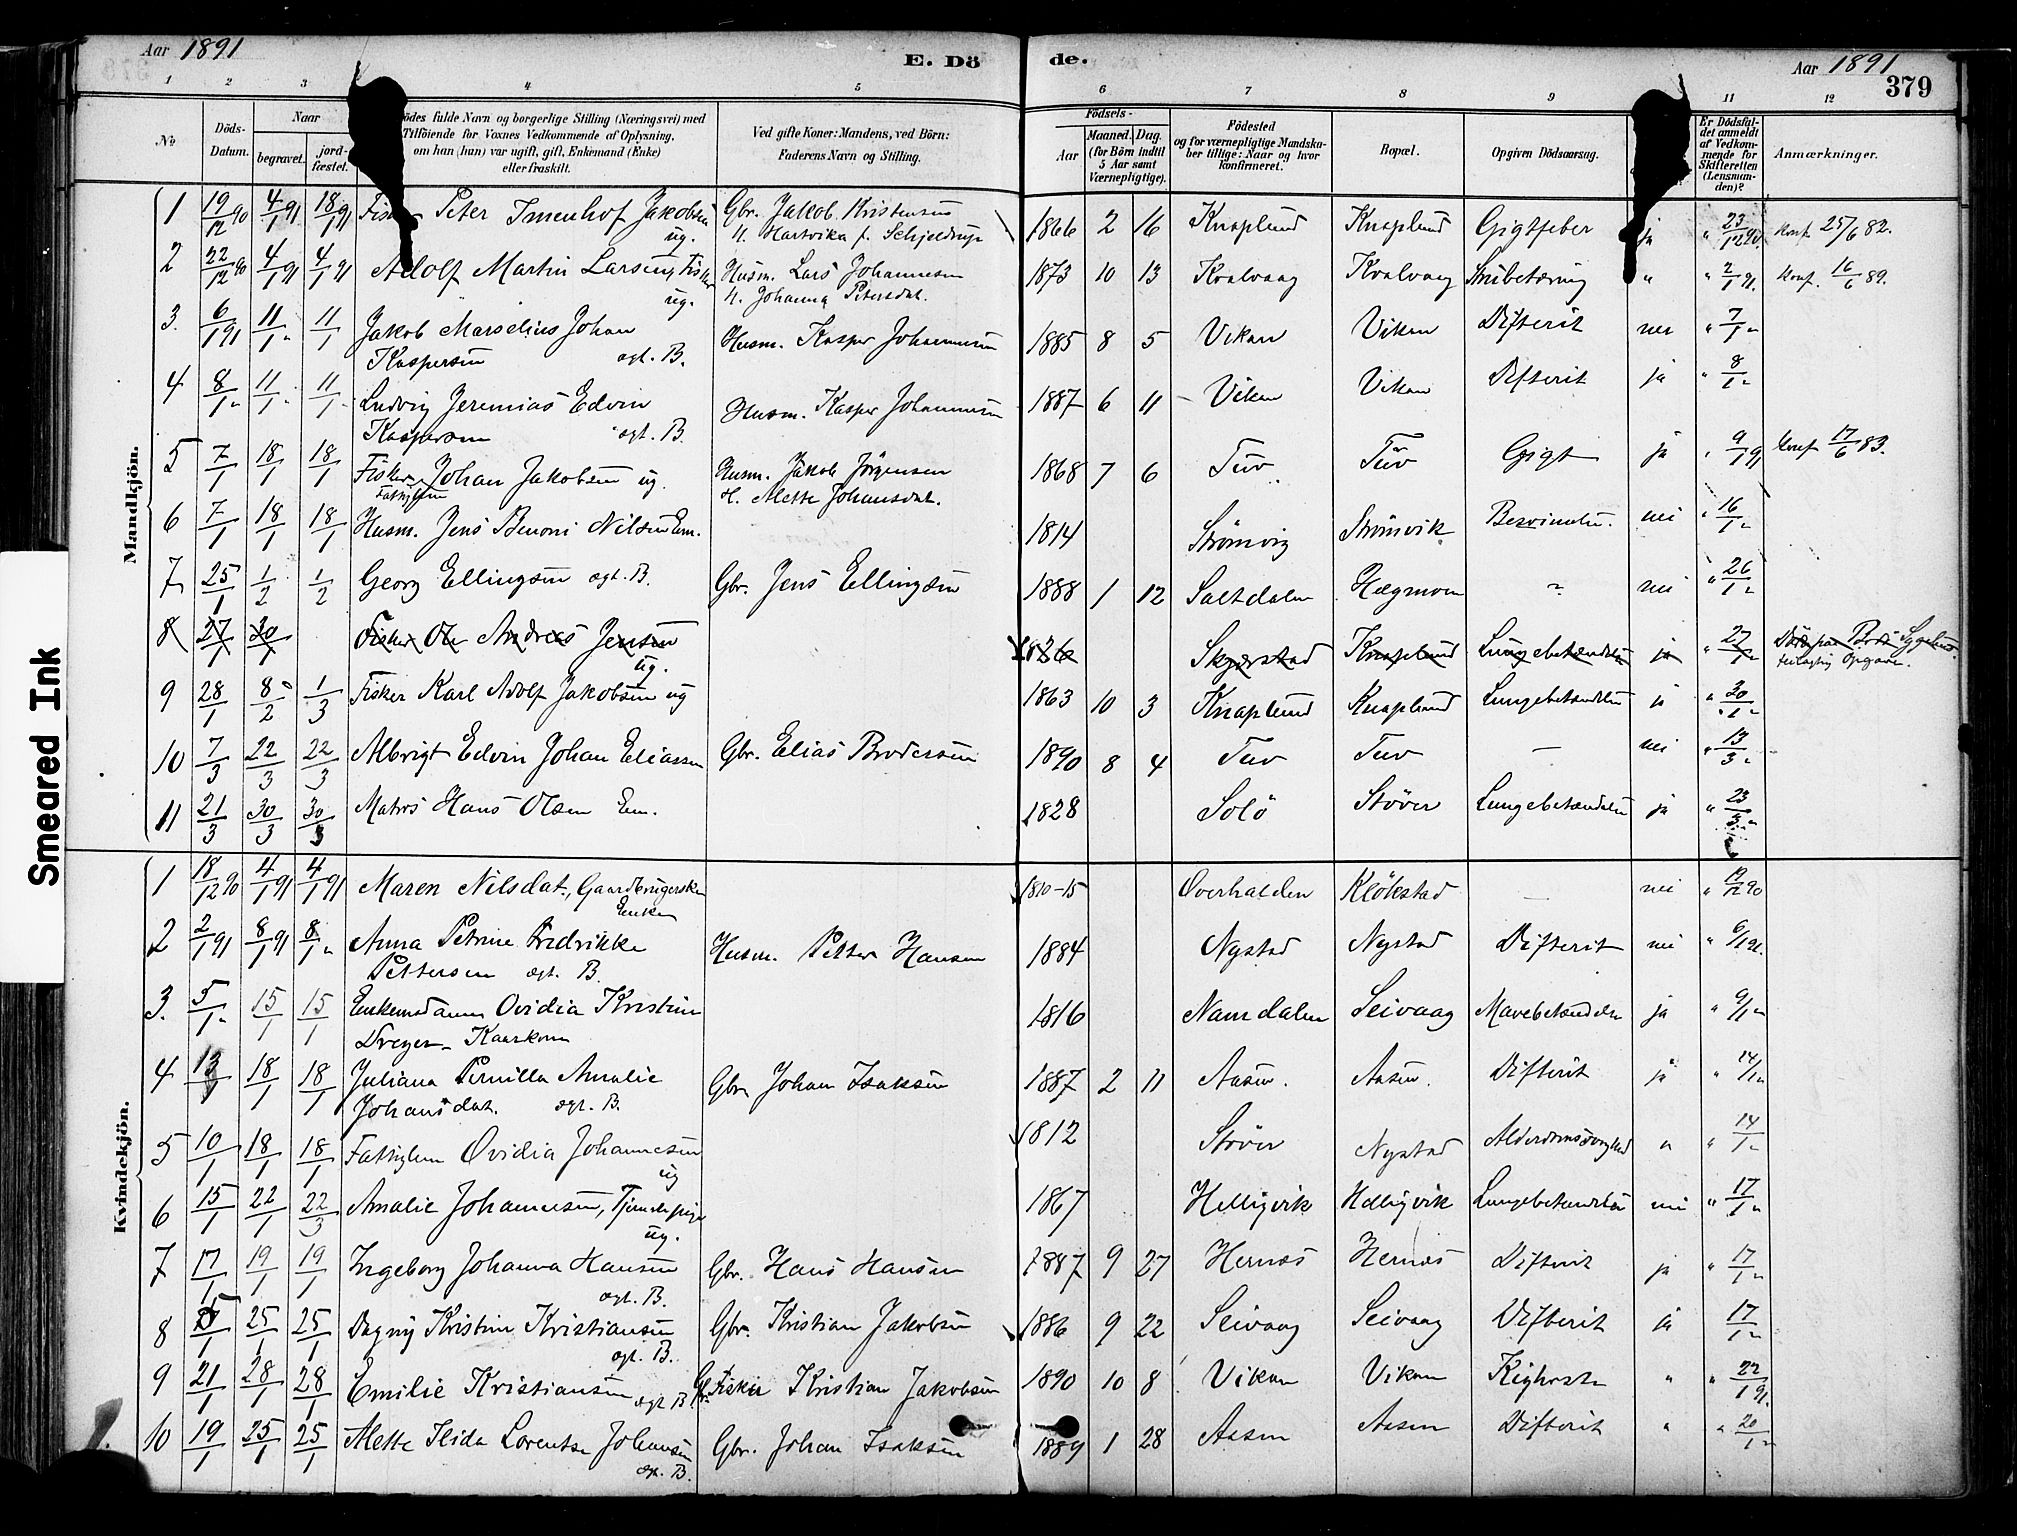 Smeared Ink
Aar 1891
E. Dö
de.
Aar 1891
379
1 2 3 4 5 6 7 8 9 11 12
No
Döds-Datum.
Naar
begravet.
jord-fæstet.
ödes fulde Navn og borgerlige Stilling (Næringsvei) med
Tilföiende for Voxnes Vedkommende af Oplysning,
om han (hun) var ugift, gift, Enkemand (Enke)
eller fraskilt.
Ved gifte Koner: Mandens, ved Börn:
Faderens Navn og Stilling.
Födsels-
Aar
Maaned. Dag.
(for Börn indtil
5 Aar samt
Værnepligtige).
Födested
og for værnepligtige Mandska-
ber tillige: Naar og hvor
konfirmeret.
Bopæl.
Opgiven Dödsaarsag.
Er Dödsfal-
det anmeldt
af Vedkom-
mende for
Skifteretten
(Lensman-
den)?
Anmærkninger.
Mandkjön.
1 19/12 90 4/1 91 18/1 91 Peter Imenhof Jakobsen ug. Gbr. Jakob Kristensen H. Hartvika f. Schjeldrup 1866 2 16 Knaplund Knaplund Gigtfeber ja " 23/12 90. Konf. 25/6 82.
2 22/12 90 4/1 91 4/1 91 Adolf Martin Larsen, Fisker ug. Husm. Lars Johannesen H. Johanna Petersdat. 1873 10 13 Kvalvaag Kvalvaag Strubetæring " " 2/1 91. Konf. 16/6 89.
3. 6/1 91 11/1 " 11/1 Jakob Marselius Johan Kaspersen ægt. B. Husm. Kasper Johannesen 1885 8 5 Vikan Vikan Difterit nei " 7/1 "
4 8/1 " 11/1 " 11/1 Ludvig Jeremias Edvin Kaspersen ægt. B. Husm. Kasper Johannesen 1887 6 11 Vikan Vikan Difterit ja " 8/1 "
5 7/1 18/1 18/1 Fisker Johan Jakobsen ug. Husm. Jakob Jörgensen H. Mette Johansdat. 1868 7 6 Tuv Tuv Gigt ja " 9/1 91 Konf 17/6 83.
6 7/1 18/1 18/1 Fattiglem Husm. Jens Benoni Nilsen Em. 1814 Strömvig Strömvik nei " 16/1 "
7 25/1 1/2 1/2 Georg Ellingsen ægt. B. Gbr. Jens Ellingsen 1888 1 12 Saltdalen Hægmoen ? nei " 26/1 "
8 27/1 30/1 Fisker Ole Andreas Jensen ug. 1836 Skjerstad Knaplund Lungebetændelse ja " 27/1 " Opgave.
9 28/1 8/2 1/3 Fisker Karl Adolf Jakobsen ug 1863 10 3 Knaplund Knaplund Lungebetændelse ja " 30/1 "
10 7/3 22/3 22/3 Albrigt Edvin Johan Eliassen Gbr. Elias Brodersen 1890 8 4 Tuv Tuv — nei " 13/3 "
11 21/3 30/3 30/3 Matros Hans Olsen Em. 1828 Solö Stöver Lungebetændelse ja " 23/3 "
Kvindekjön.
1 18/12 90 4/1 91 4/1 91 Maren Nilsdat., Gaardbrugerske Enke 1810-15 Overhalden Klökstad — nei " 19/12 90
2 2/1 91 8/1 91 8/1 " Anna Petrine Fredrikke Pettersen ægt. B. Husm. Petter Hansen 1884 Nystad Nystad Difterit nei " 6/1 91.
3. 5/1 " 15/1 15/1 Enkemadame Ovidia Kristine Dreyer 1816 Namdalen Seivaag Mavebetændelse ja " 9/1 "
4 13/1 18/1 18/1 Juliana Pernilla Amalie Johansdat. ægt. B. Gbr Johan Isaksen 1887 2 11 Aasen. Aasen. Difterit ja " 14/1 "
5 10/1 18/1 18/1 Fattiglem Ovidia Johannesen ug 1812 Stöver Nystad Alderdomssvaghed " " 14/1 "
6 15/1 22/1 22/3 Amalie Johannesen, Tjenestepige ug. 1867 Helligvik Helligvik Lungebetændelse nei " 17/1 "
7 17/1 19/1 19/1 Ingeborg Johanna Hansen ægt. B. Gbr. Hans Hansen 1887 9 27 Hernæs Hernæs Difterit ja " 17/1 "
8 15/1 25/1 25/1 Dagny Kristine Kristiansen ægt. B. Gbr. Kristian Jakobsen 1886 9 22 Seivaag Seivaag Difterit ja 17/1 "
9 21/1 28/1 28/1 Emilie Kristiansen ægt B. Fisker Kristian Jakobsen 1890 10 8 Vikan Vikan Kighoste " " 22/1 91.
10 19/1 25/1 25/1 Mette Ilida Lorentze Johansen ægt. B. Gbr. Johan Isaksen 1889 1 28 Aasen Aasen Difterit " " 20/1 "